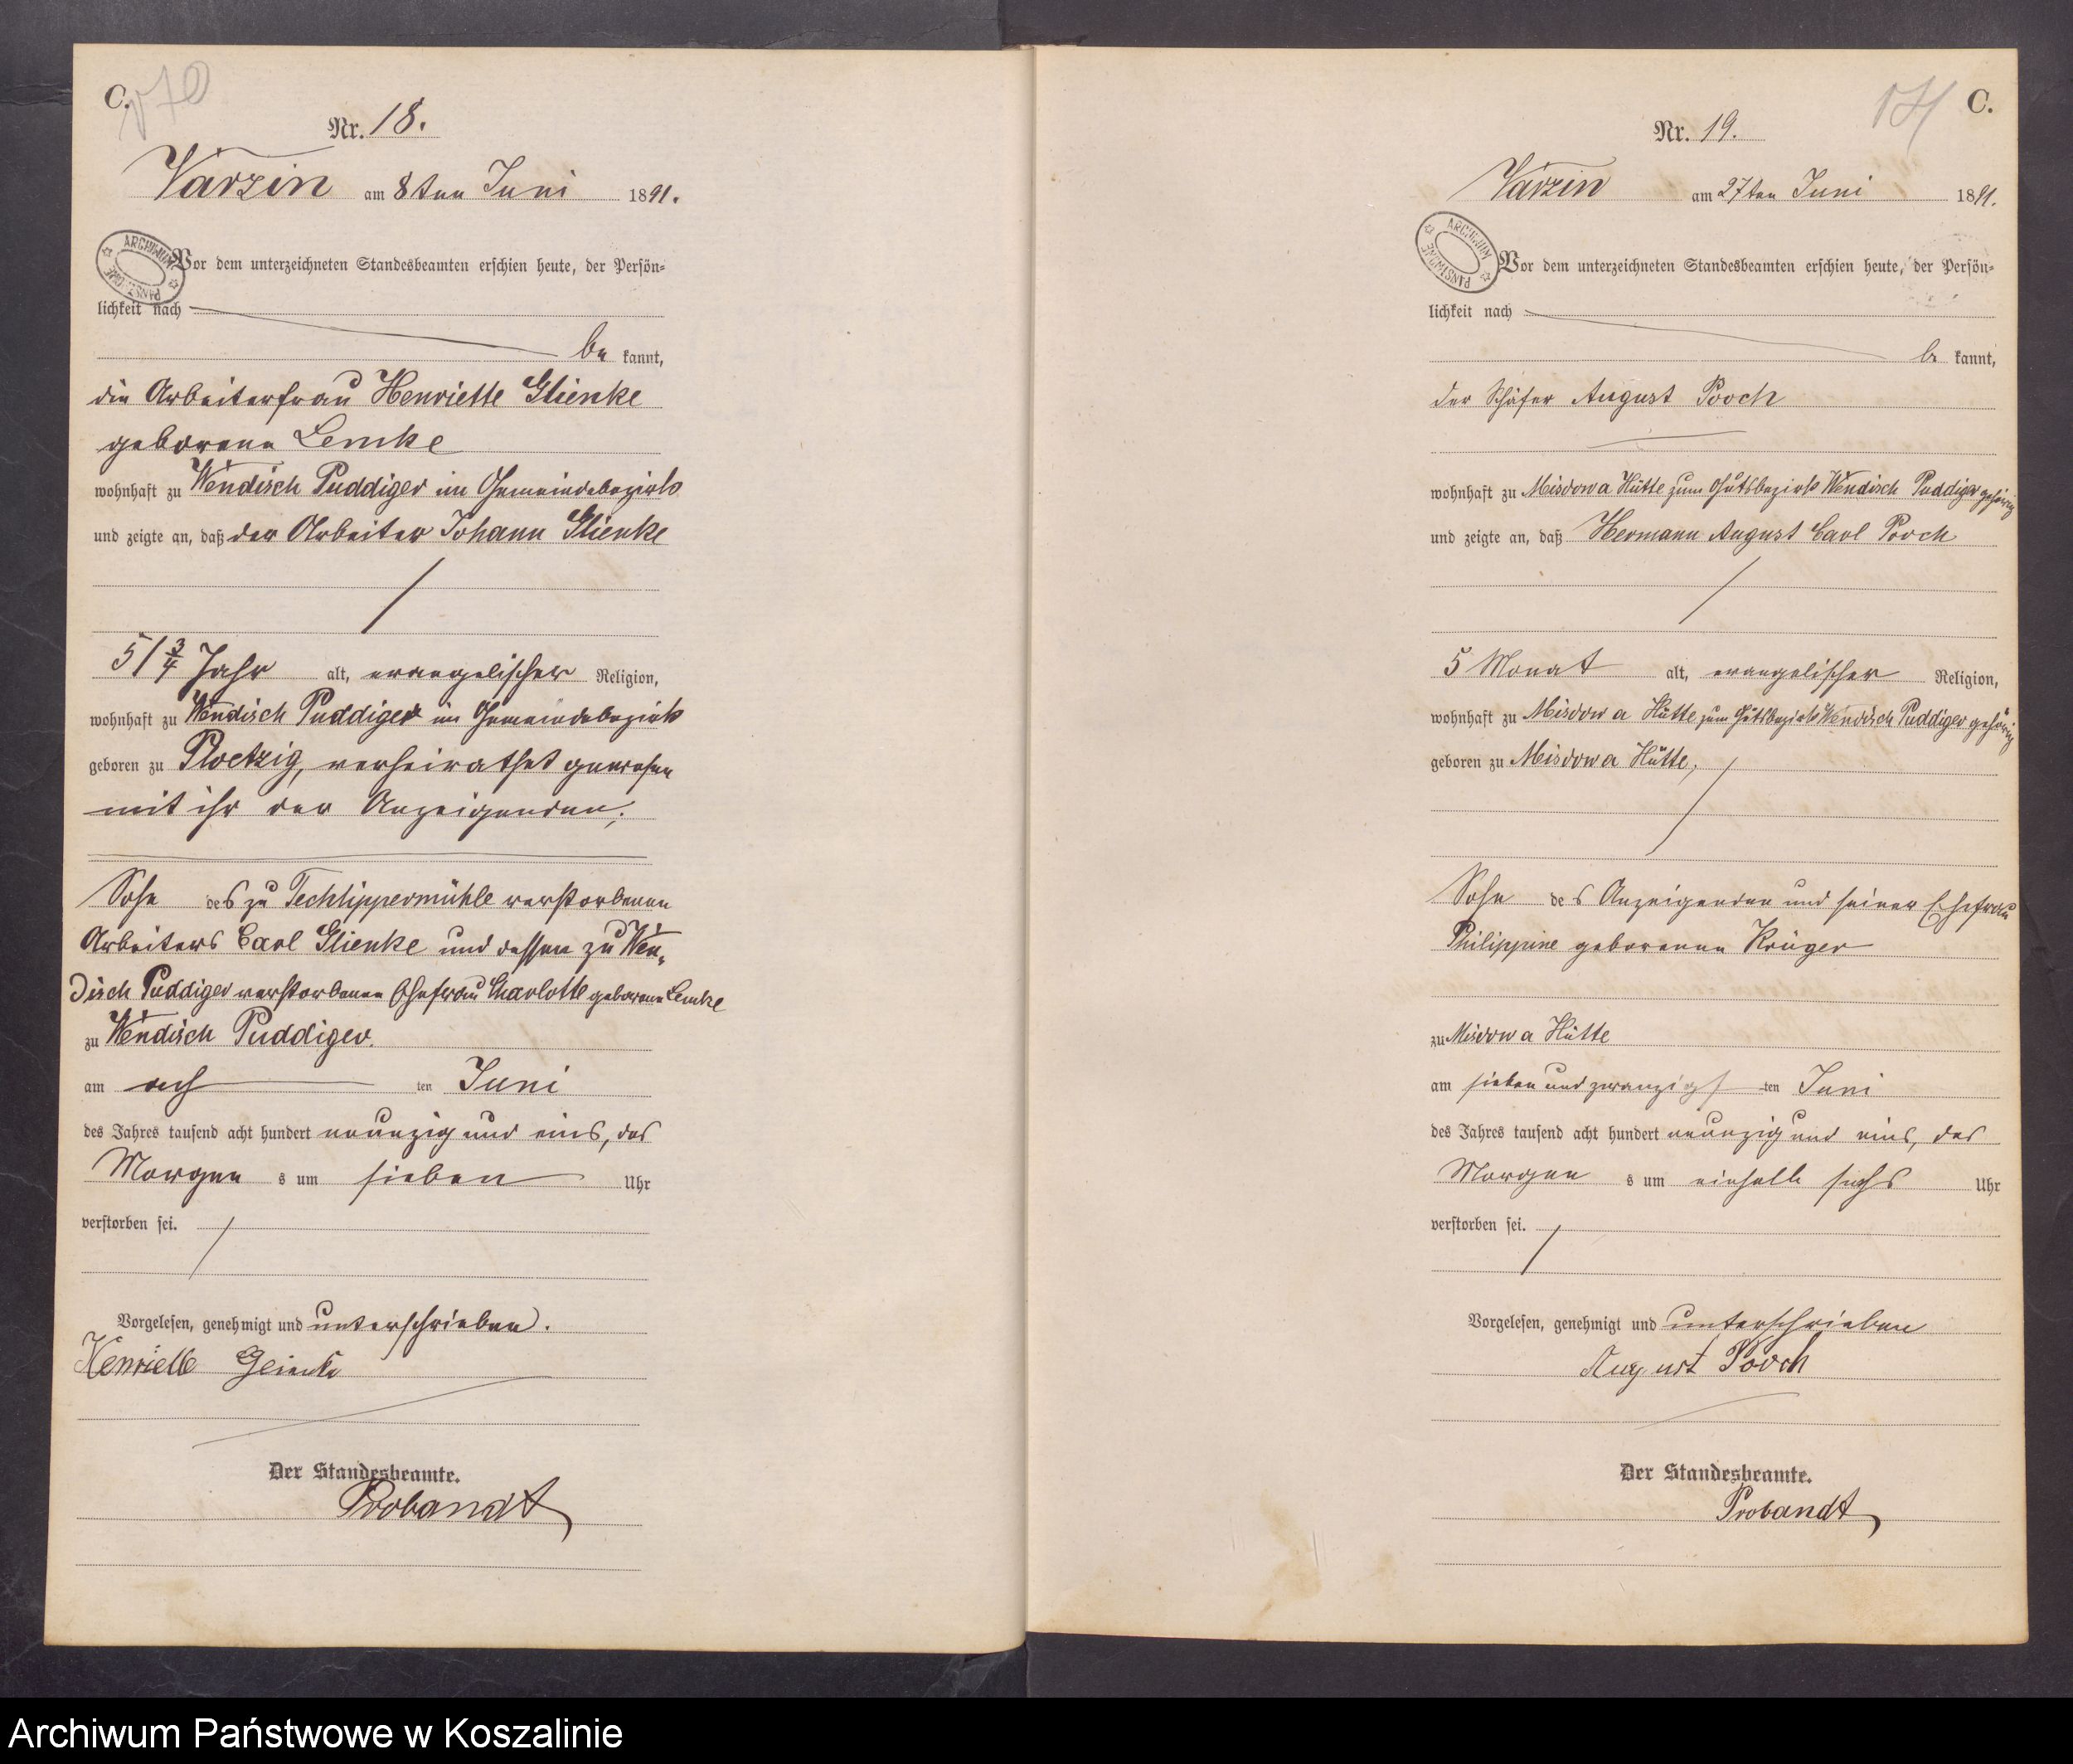 C.
170
Nr. 18.
Varzin am 8ten Juni 1891.
Vor dem unterzeichneten Standesbeamten erschien heute, der Persön-
lichkeit nach
be kannt,
die Arbeiterfrau Henriette Glienke
geborene Lemke
wohnhaft zu Wendisch Puddiger im Gemeindebezirk
und zeigte an, daß der Arbeiter Johann Glienke
51 3/4 Jahr alt, evangelischer Religion,
wohnhaft zu Wendisch Puddiger im Gemeindebezirk
geboren zu Ploetzig, verheirathet gewesen
mit ihr der Anzeigenden;
Sohn des zu Techlippermühle verstorbenen
Arbeiters Carl Glienke und dessen zu Wen-
disch Puddiger verstorbenen Ehefrau Charlotte geborene Lemke
zu Wendisch Puddiger.
am ach ten Juni
des Jahres tausend acht hundert neunzig und eins, des
Morgen s um sieben Uhr
verstorben sei.
Vorgelesen, genehmigt und unterschrieben.
Henriette
Der Standesbeamte.
Probandt
171
C.
Nr. 19.
Varzin am 27ten Juni 1891.
Vor dem unterzeichneten Standesbeamten erschien heute, der Persön-
lichkeit nach
be kannt,
der Schäfer August Pooch
wohnhaft zu Misdow a Hütte zum Gutsbezirk Wendisch Puddiger gehörig
und zeigte an, daß Hermann August Carl Pooch
5 Monat alt, evangelischer Religion,
wohnhaft zu Misdow a Hütte, zum Gutsbezirk Wendisch Puddiger gehörig
geboren zu Misdow a Hütte,
Sohn des Anzeigenden und seiner Ehefrau
Philippine geborenen Krüger
zu Misdow a Hütte
am sieben und zwanzigs ten Juni
des Jahres tausend acht hundert neunzig und eins, des
Morgen s um einhalb sechs Uhr
verstorben sei.
Vorgelesen, genehmigt und unterschrieben
August Pooch
Der Standesbeamte.
Probandt
ARCHIWUM PAŃSTWOWE
ARCHIWUM PAŃSTWOWE
Archiwum Państwowe w Koszalinie